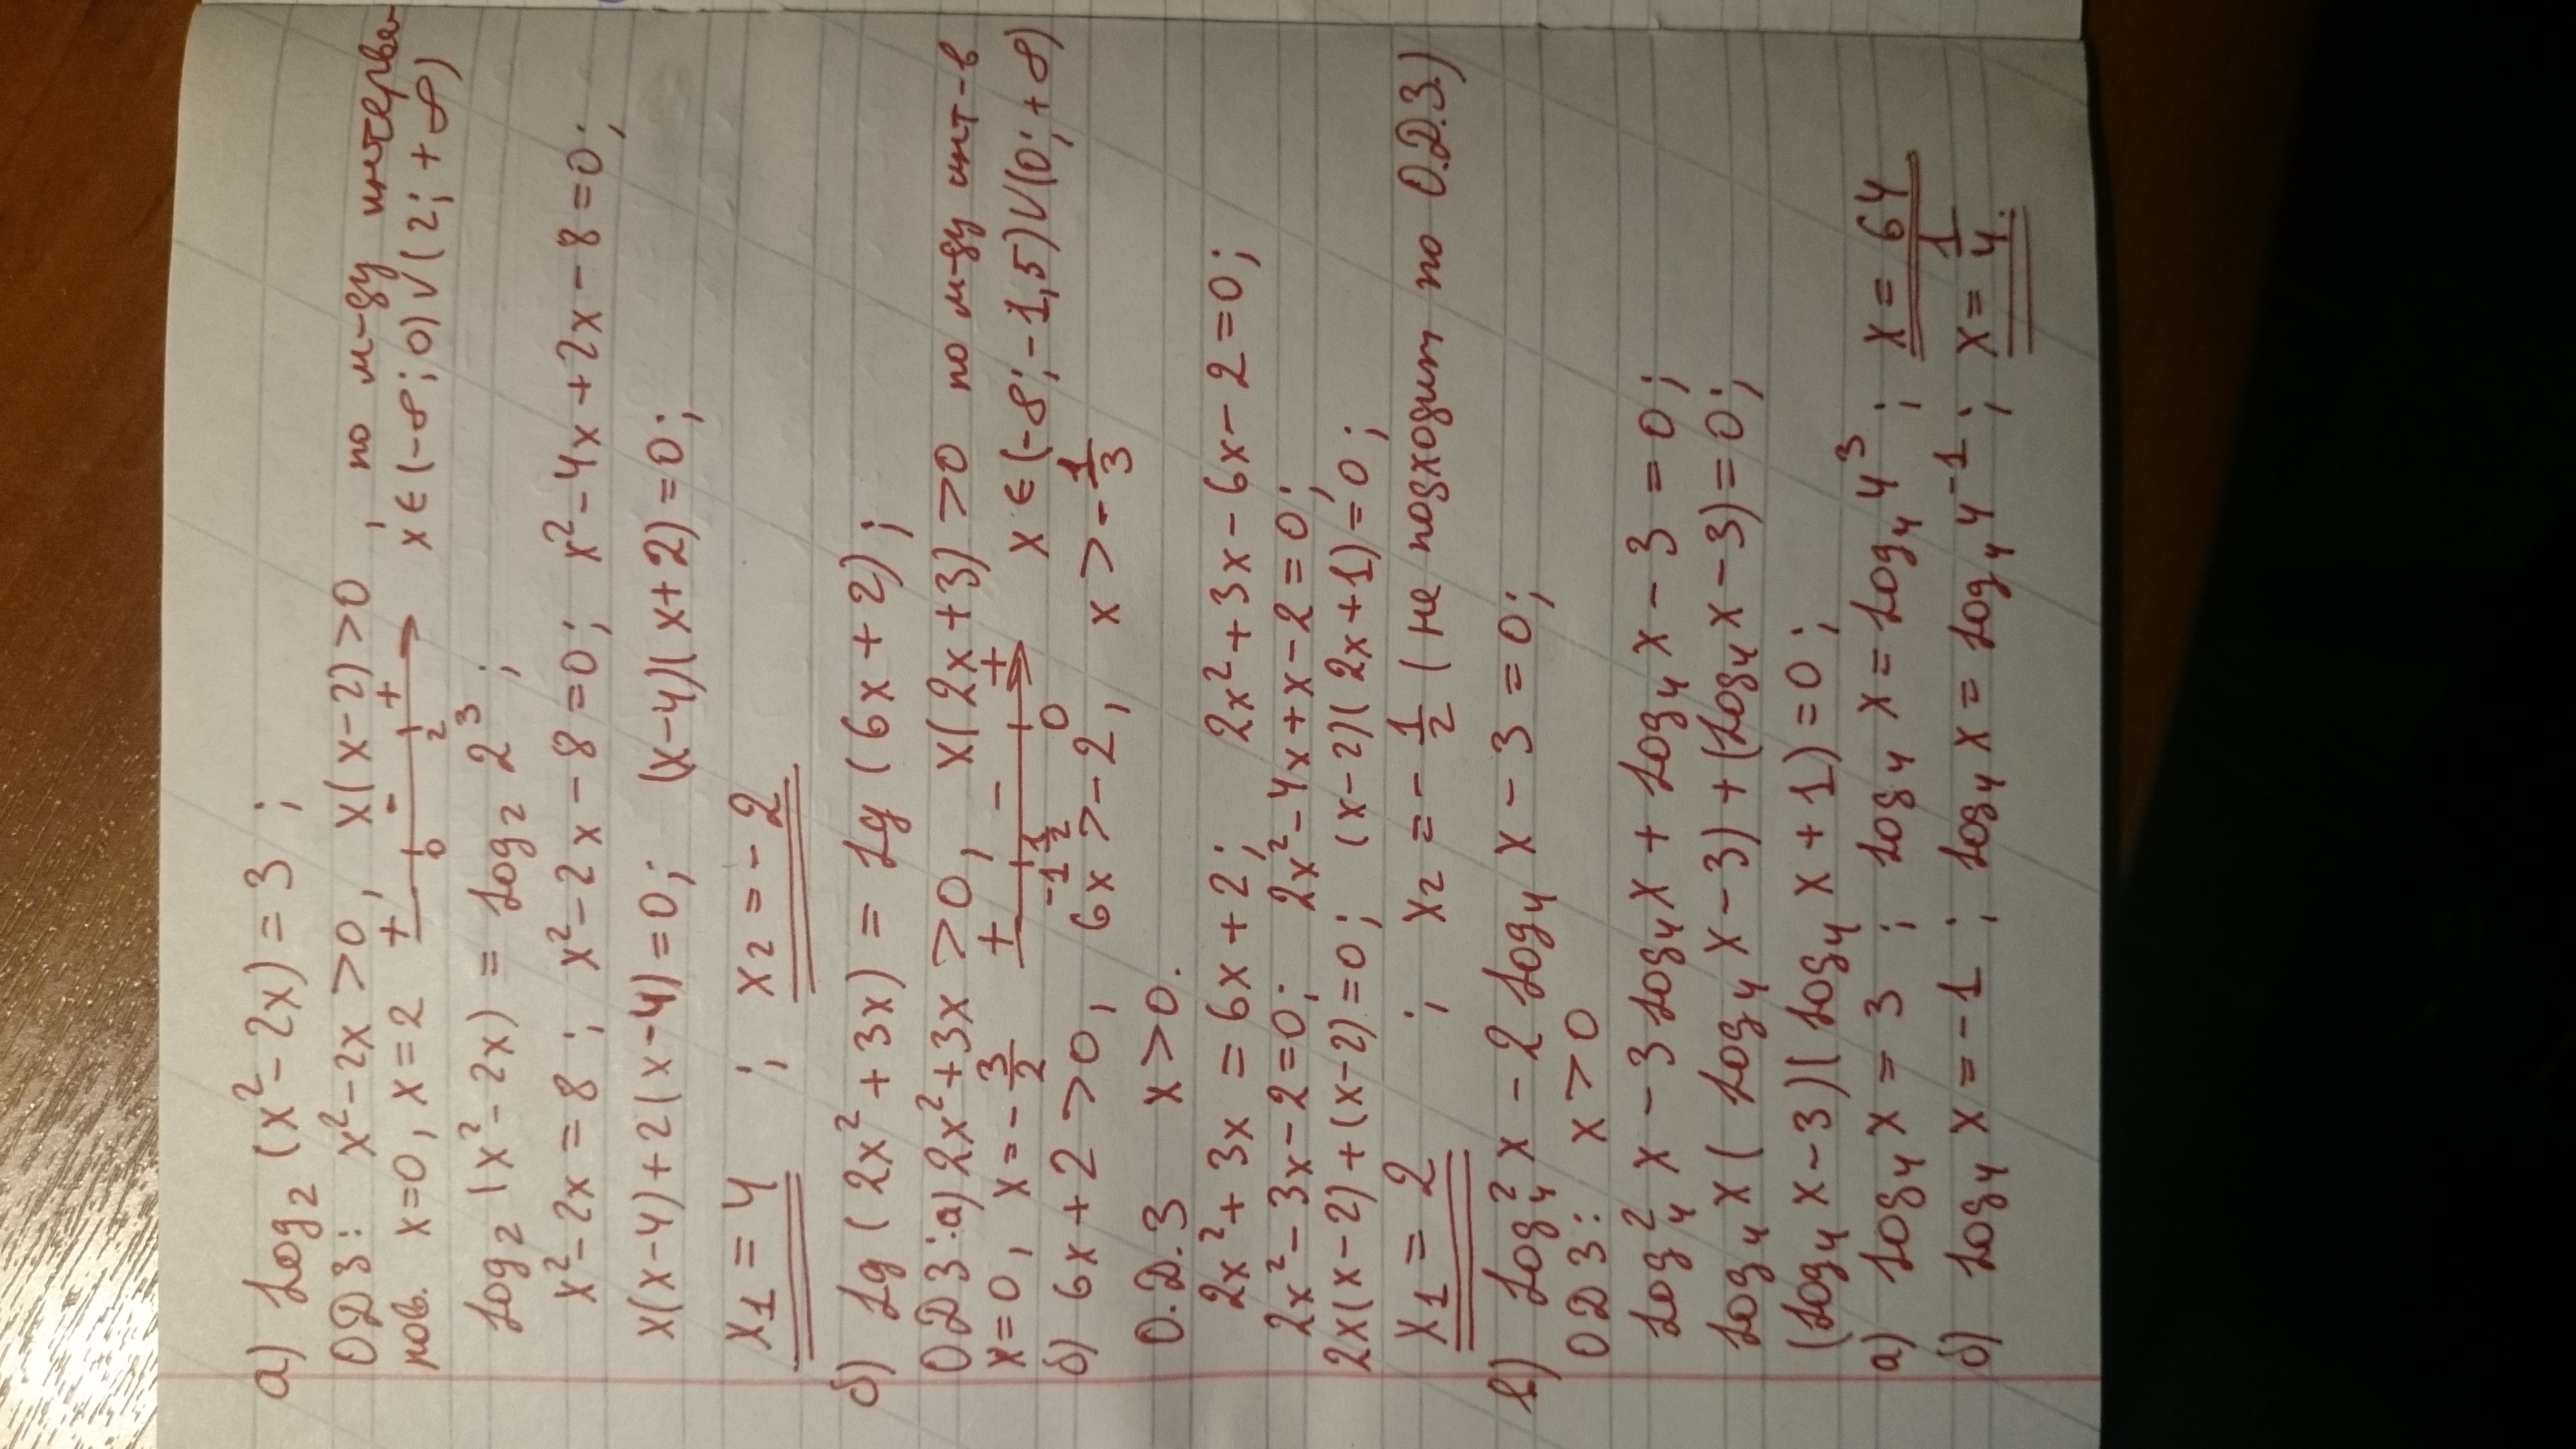 а) log₂ (x² - 2x) = 3 ;
ОДЗ: x² - 2x > 0, x(x-2) > 0 , по м-ду интервалов.
x=0, x=2 + - + 0 2 x ∈ (-∞; 0) ∨ (2; +∞)
log₂ (x² - 2x) = log₂ 2³ ;
x² - 2x = 8 ; x² - 2x - 8 = 0; x² - 4x + 2x - 8 = 0;
x(x-4) + 2(x-4) = 0; (x-4)(x+2) = 0;
x₁ = 4 ; x₂ = -2
б) lg (2x² + 3x) = lg (6x + 2) ;
ОДЗ: а) 2x² + 3x > 0, x(2x+3) > 0 по м-ду инт-в
x=0, x = -3/2 + - + -1 1/2 0 x ∈ (-∞; -1,5) ∨ (0; +∞)
б) 6x + 2 > 0, 6x > -2, x > -1/3
О.Д.З x > 0.
2x² + 3x = 6x + 2; 2x² + 3x - 6x - 2 = 0;
2x² - 3x - 2 = 0; 2x² - 4x + x - 2 = 0;
2x(x-2) + (x-2) = 0; (x-2)(2x+1) = 0;
x₁ = 2 ; x₂ = -1/2 (не подходит по О.Д.З.)
в) log₄² x - 2 log₄ x - 3 = 0;
ОДЗ: x > 0
log₄² x - 3 log₄ x + log₄ x - 3 = 0;
log₄ x (log₄ x - 3) + (log₄ x - 3) = 0;
(log₄ x - 3)(log₄ x + 1) = 0;
а) log₄ x = 3 ; log₄ x = log₄ 4³ ; x = 64
б) log₄ x = -1 ; log₄ x = log₄ 4⁻¹ ; x = 1/4.